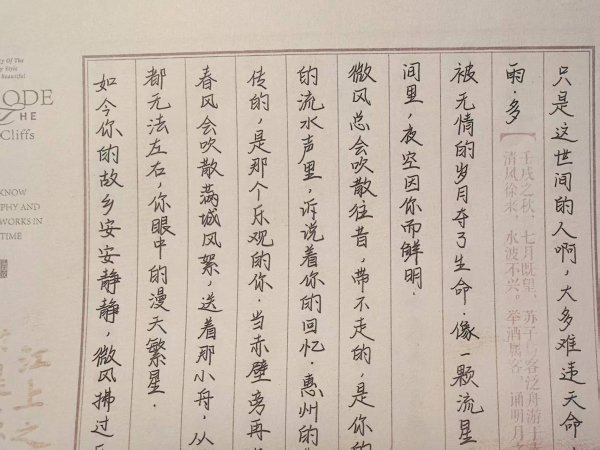 只是这世间的人啊,大多难违天命,
雨.多
壬戌之秋,七月既望,苏子与客泛舟游于
清风徐来,水波不兴。举酒属客,诵明月之
被无情的岁月夺了生命.像一颗流星
间里,夜空因你而鲜明.
微风总会吹散往昔,带不走的,是你的
的流水声里,诉说着你的回忆.惠州的
传的,是那个乐观的你.当赤壁旁再
春风会吹散满城风絮,送着那小舟,从
都无法左右,你眼中的漫天繁星.
如今你的故乡安安静静,微风拂过
y Of The
y Style
Beautiful
ODE
HE
Cliffs
KNOW
PHY AND
WORKS IN
TIME
江上之